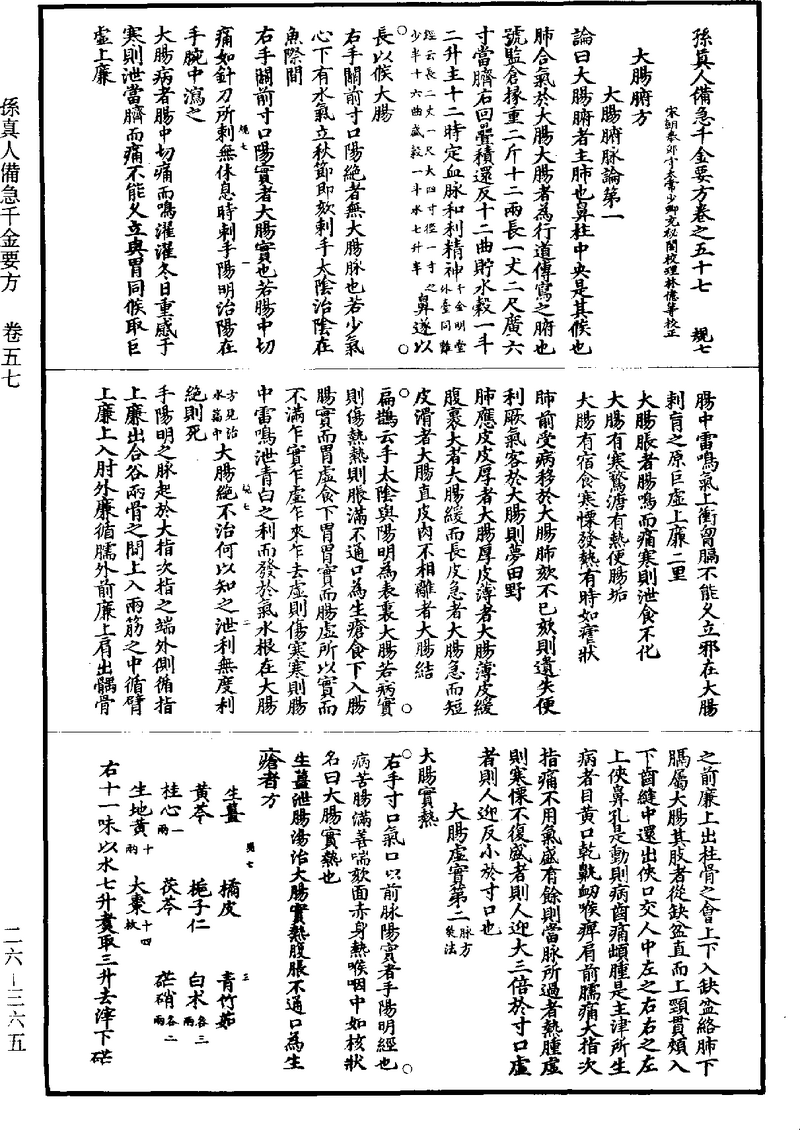 孫真人備急千金要方卷之五十七 規七
宋朝奉郎守太常少卿充秘閣校理林億等校正
大腸腑方
大腸腑脉論第一
論曰大腸腑者主肺也鼻柱中央是其候也
肺合氣於大腸大腸者為行道傳寫之腑也
號監倉掾重二斤十二兩長一丈二尺廣六
寸當臍右回疊積還反十二曲貯水穀一斗
二升主十二時定血脉和利精神千金明堂外臺同難
經云長二丈一尺大四寸徑一寸之少半十六曲盛穀一斗水七升半鼻遂以
長以候大腸
右手關前寸口陽絶者無大腸脉也若少氣
心下有水氣立秋節即欬刺手太陰治陰在
魚際間
右手關前寸口陽實者大腸實也若腸中切
規七 一
痛如針刀所刺無休息時刺手陽明治陽在
手腕中瀉之
大腸病者腸中切痛而鳴濯濯冬日重感于
寒則泄當臍而痛不能久立與胃同候取巨
虛上廉
腸中雷鳴氣上衝胷膈不能久立邪在大腸
刺肓之原巨虛上廉二里
大腸脹者腸鳴而痛寒則泄食不化
大腸有寒鶩溏有熱便腸垢
大腸有宿食寒慄發熱有時如瘧狀
肺前受病移於大腸肺欬不已欬則遺失便
利厥氣客於大腸則夢田野
肺應皮皮厚者大腸厚皮薄者大腸薄皮緩
腹裹大者大腸緩而長皮急者大腸急而短
皮滑者大腸直皮肉不相離者大腸結
扁鵲云手太陰與陽明為表裏大腸若病實
則傷熱熱則脹滿不通口為生瘡食下入腸
腸實而胃虛食下胃胃實而腸虛所以實而
不滿乍實乍虛乍來乍去虛則傷寒寒則腸
中雷鳴泄青白之利而發於氣水根在大腸
規七 二
方見治水篇中大腸絶不治何以知之泄利無度利
絶則死
手陽明之脉起於大指次指之端外側循指
上廉出合谷兩骨之間上入兩筋之中循臂
上廉上入肘外廉循臑外前廉上肩出髃骨
之前廉上出柱骨之會上下入缺盆絡肺下
膈屬大腸其肢者從缺盆直而上頸貫頰入
下齒縫中還出俠口交人中左之右右之左
上俠鼻孔是動則病齒痛䪼腫是主津所生
病者目黃口乾鼽衂喉痺肩前臑痛大指次
指痛不用氣盛有餘則當脉所過者熱腫虛
則寒慄不復盛者則人迎大三倍於寸口虛
者則人迎反小於寸口也
大腸虛實第二脉方灸法
大腸實熱
右手寸口氣口以前脉陽實者手陽明經也
病苦腸滿善喘欬面赤身熱喉咽中如核狀
名曰大腸實熱也
生薑泄腸湯治大腸實熱腹脹不通口為生
瘡者方
規七 三
生薑 橘皮 青竹茹
黃芩 梔子仁 白朮各三兩
桂心一兩 茯苓 芒硝各二兩
生地黃十兩 大棗十四枚
右十一味以水七升煑取三升去滓下芒
孫真人備急千金要方 卷五七
二六–三六五